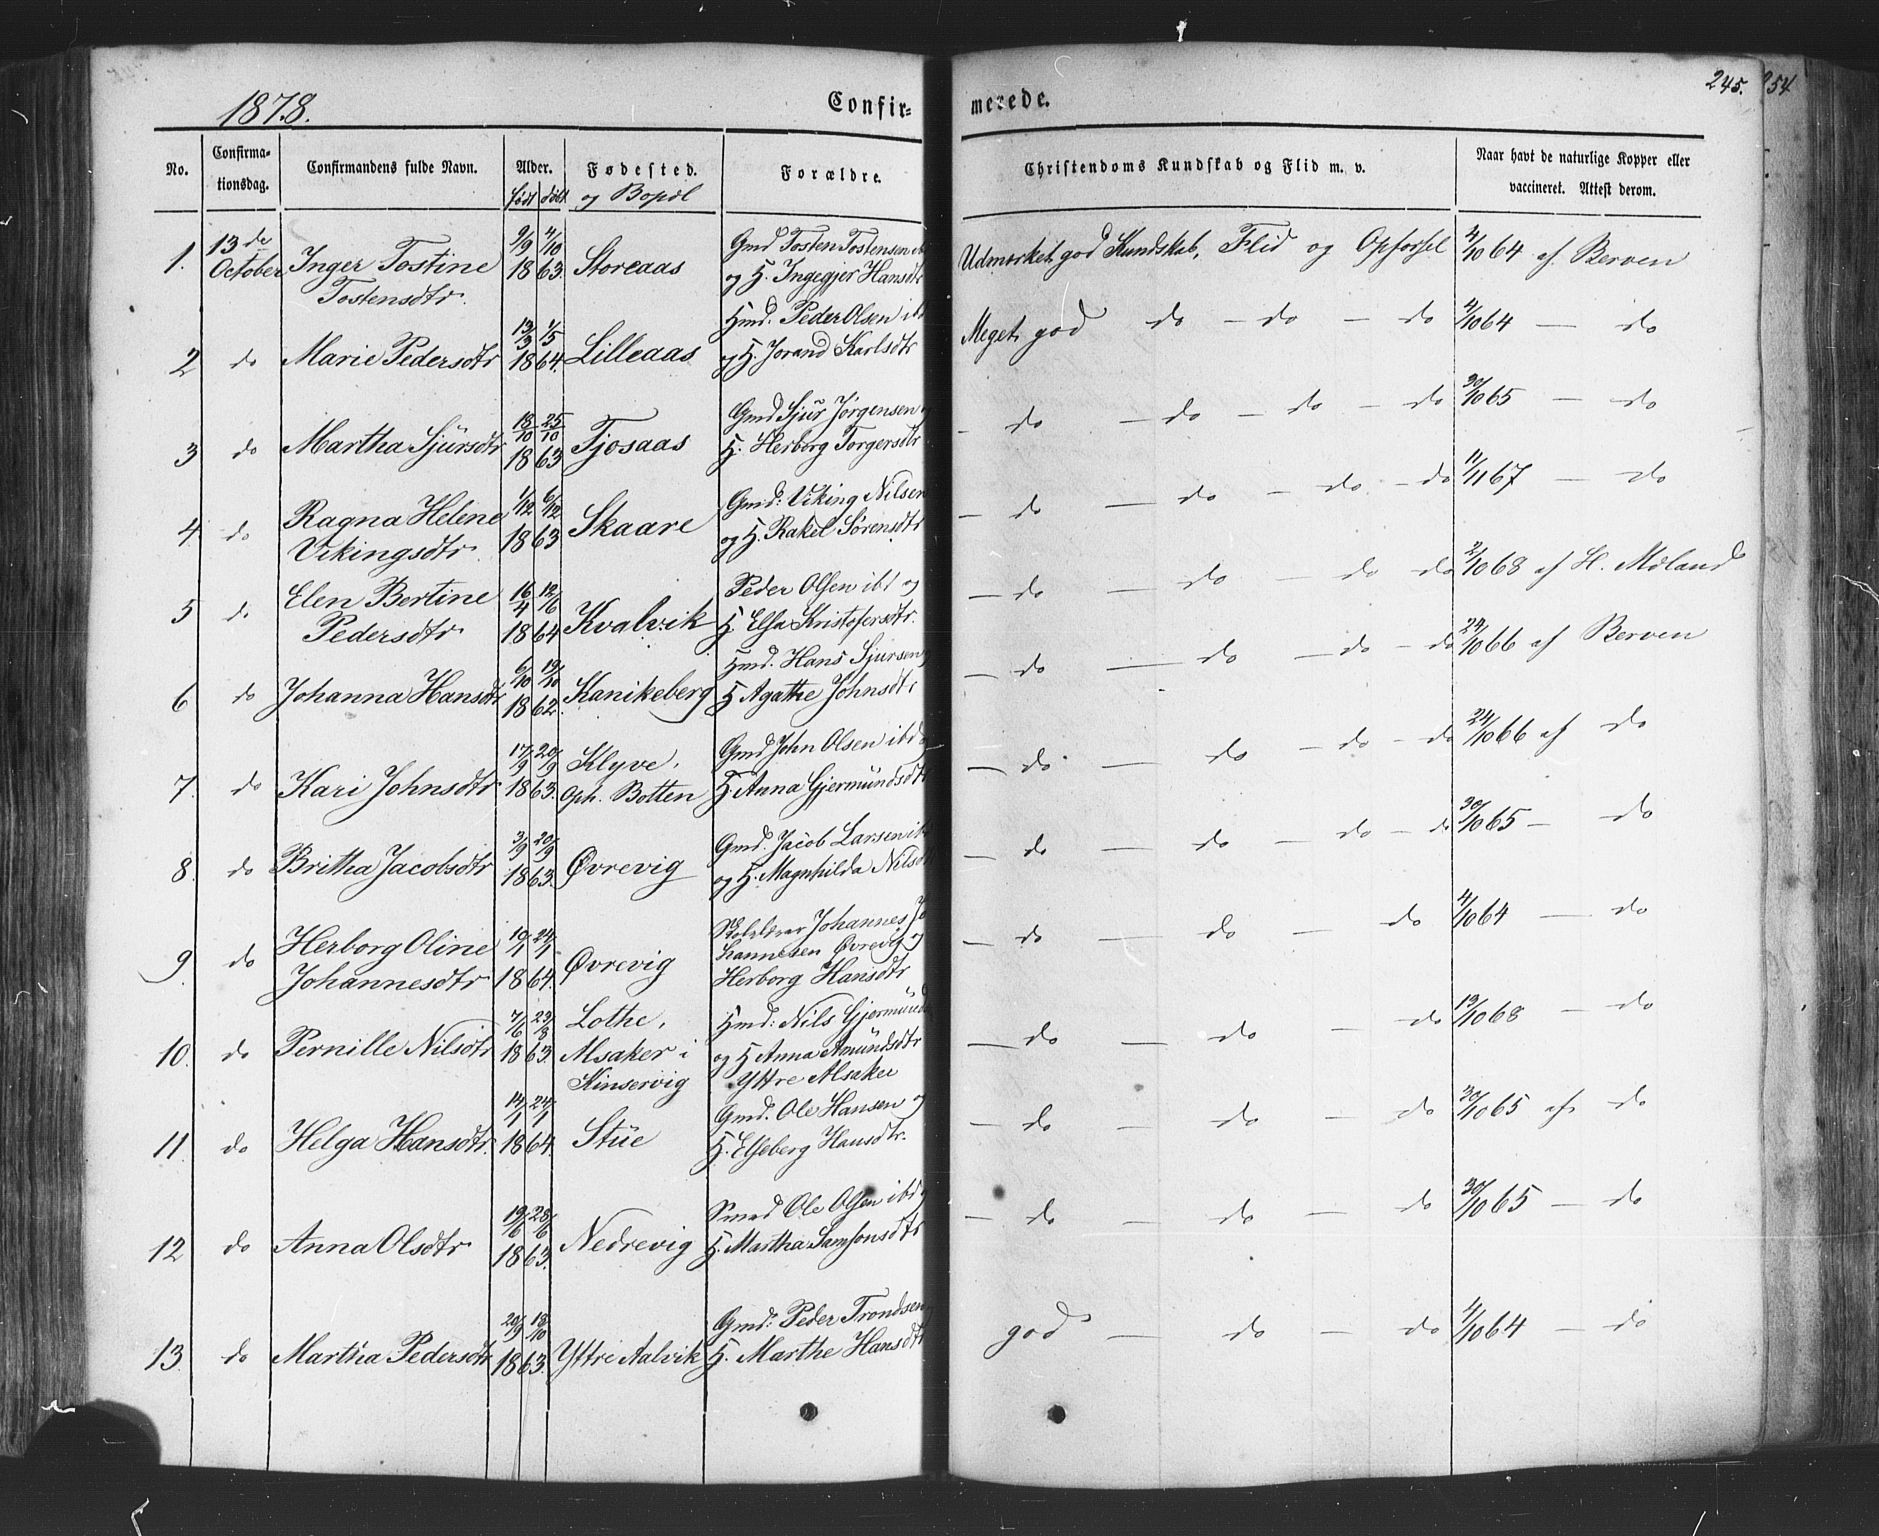 1878.
Confirmerede.
245.
254
No.
Confirmationsdag.
Confirmandens fulde Navn.
Alder.
født døbt
Fødested.
og Bopæl
Forældre.
Christendoms Kundskab og Flid m. v.
Naar havt de naturlige Kopper eller
vaccineret. Attest derom.
1. 13de October Inger Tostine Tostensdtr. 9/9 4/10 1863. Storeaas Gmd Tosten Tostensen ibd og H. Ingegjer Hansdtr Udmærket god Kundskab, Flid og Opførsel 4/10 64 af Berven
2 do Marie Pedersdtr 13/3 1/5 1864. Lilleaas Hmd. Peder Olsen ibd og H. Jorand Karlsdtr Meget god do - do - do 4/10 64 — do
3 do Martha Sjürsdtr 18/10 25/10 1863 Tjosaas Gmd Sjur Jørgensen og H. Herborg Torgersdtr - do - do - do - do 30/10 65 - do
4. do Ragna Helene Vikingsdtr. 1/12 6/12 1863 Skaare Gmd: Viking Nilsen og H. Rakel Sørensdtr - do - do - do - do 11/11 67 - do
5 do Elen Bertine Pedersdtr 16/4 12/6 1864 Kvalvik Peder Olsen ibd og H. Elsa Kristofersdtr. - do - do - do do 2/10 68 af H. Mæland
6 do Johanna Hansdtr 6/10 19/10 1862. Kanikeberg Hmd. Hans Sjursen og H Agathe Johnsdtr - do - do - do - do 24/10 66 af Berven
7. do Kari Johnsdtr 17/9 20/9 1863. Klyve, Oph. Botten Gmd John Olsen ibd og H. Anna Gjermündsdtr - do - do - do - do 24/10 66 af do
8. do Britha Jacobsdtr 3/9 20/9 1863. Øvrevig Gmd. Jacob Larsen ibd og H. Magnhilda Nilsdtr - do - do - do - do 30/10 65 - do
9. do Herborg Oline Johannesdtr 19/1 24/1 1864. Øvrevig Johannes Johannesen Øvrevig og Herborg Hansdtr - do - do - do 4/10 64 - do
10. do Pernille Nilsdtr 7/6 23/8 1863. Lothe, Alsaker i Kinservig Hmd: Nils Gjermünds og H Anna Amündsdtr Yttre Alsaker - do - do - do 19/10 68 - do
11. do Helga Hansdtr. 14/1 24/1 1864. Stüe Gmd. Ole Hansen og H. Elseberg Hansdtr. - do - do - do 30/10 65 af do
12 do Anna Olsdtr 19/6 28/6 1863. Nedrevig Smed Ole Olsen ibd og H. Martha Samsonsdtr - do - do - do 30/10 65 - do
13. do Martha Pedersdtr 20/9 18/10 1863. Yttre Aalvik Gmd: Peder Trondsen H. Marthe Hansdtr god - do - do 4/10 64 - do